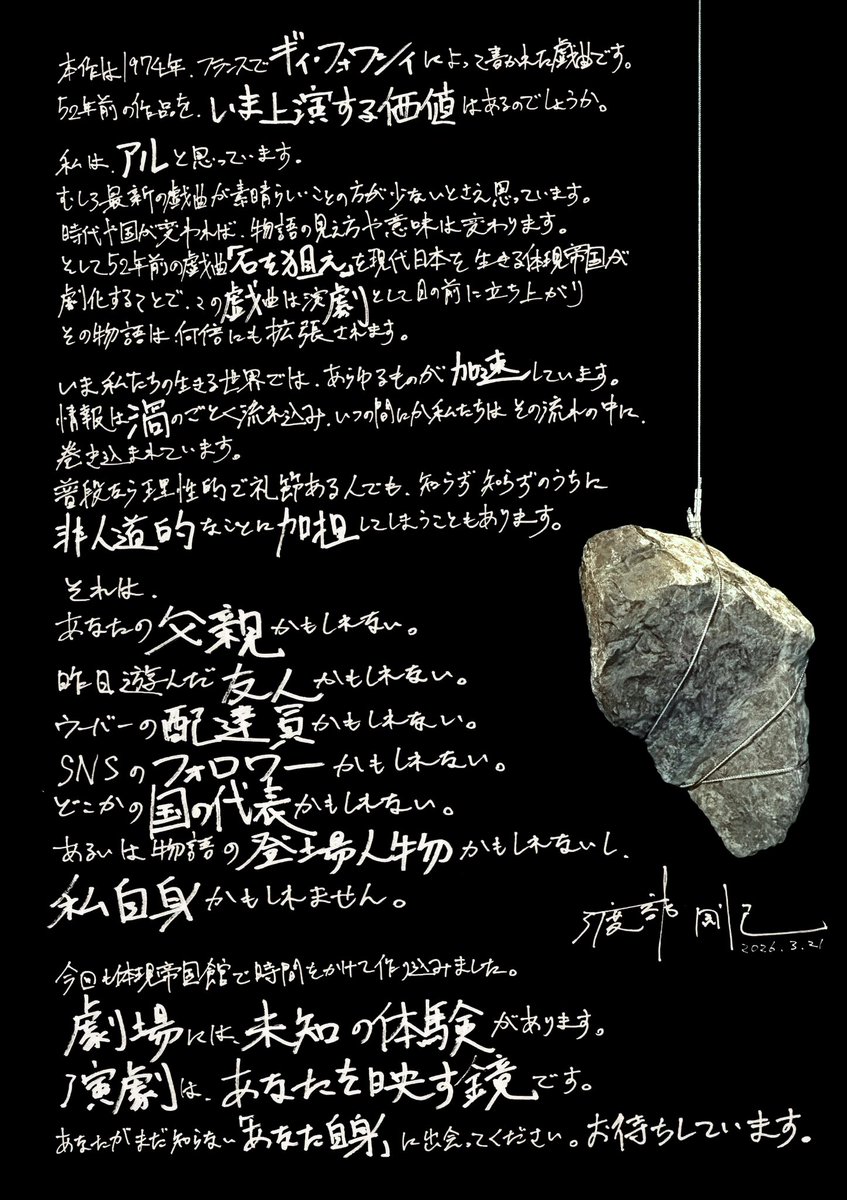 本作は1974年、フランスでギィ・フォワシィによって書かれた戯曲です。
52年前の作品を、いま上演する価値はあるのでしょうか。
私は、アルと思っています。
むしろ最新の戯曲が素晴らしいことの方が少ないとさえ思っています。
時代や国が変われば、物語の見え方や意味は変わります。
そして52年前の戯曲「石を狙え」を現代日本を生きる体現帝国が
劇化することで、この戯曲は演劇として目の前に立ち上がり
その物語は何倍にも拡張されます。
いま私たちの生きる世界では、あらゆるものが加速しています。
情報は渦のごとく流れ込み、いつの間にか私たちはその流れの中に、
巻き込まれています。
普段なら理性的で礼節ある人でも、知らず知らずのうちに
非人道的なことに加担してしまうこともあります。
それは、
あなたの父親かもしれない。
昨日遊んだ友人かもしれない。
ウーバーの配達員かもしれない。
SNSのフォロワーかもしれない。
どこかの国の代表かもしれない。
あるいは物語の登場人物かもしれないし、
私自身かもしれません。
渡部剛己
2026.3.21
今回も体現帝国館で時間をかけて作り込みました。
劇場には、未知の体験があります。
演劇は、あなたを映す鏡です。
あなたがまだ知らない「あなた自身」に出会ってください。お待ちしています。